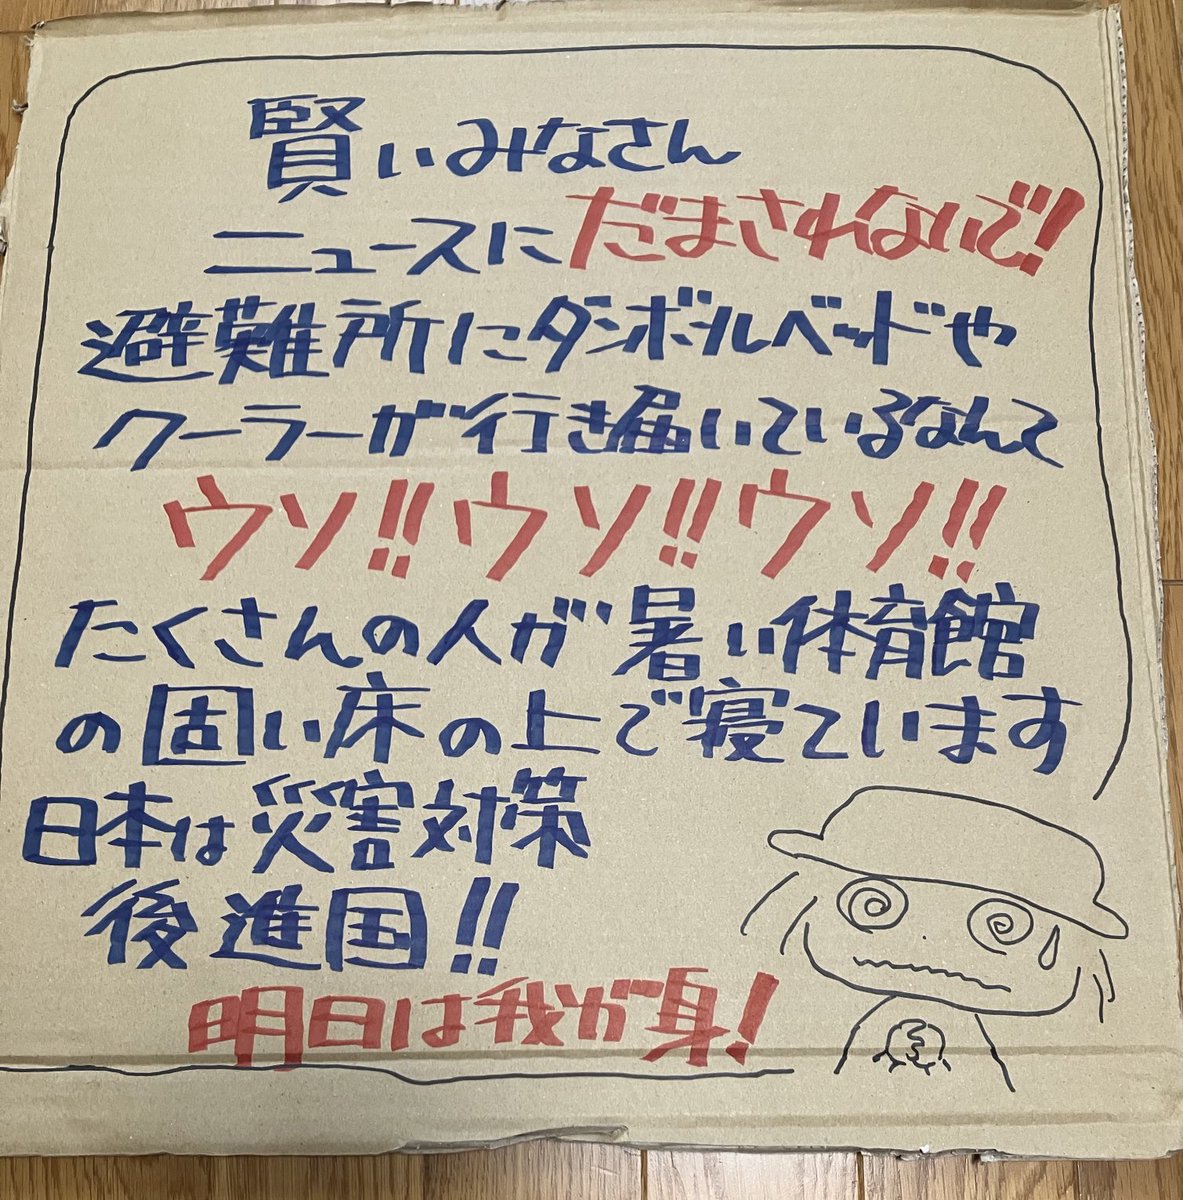 賢いみなさん
ニュースにだまされないで!!
避難所にダンボールベッドや
クーラーが行き届いているなんて
ウソ!!ウソ!!ウソ!!
たくさんの人が暑い体育館
の固い床の上で寝ています
日本は災害対策
後進国!!
明日は我が身!